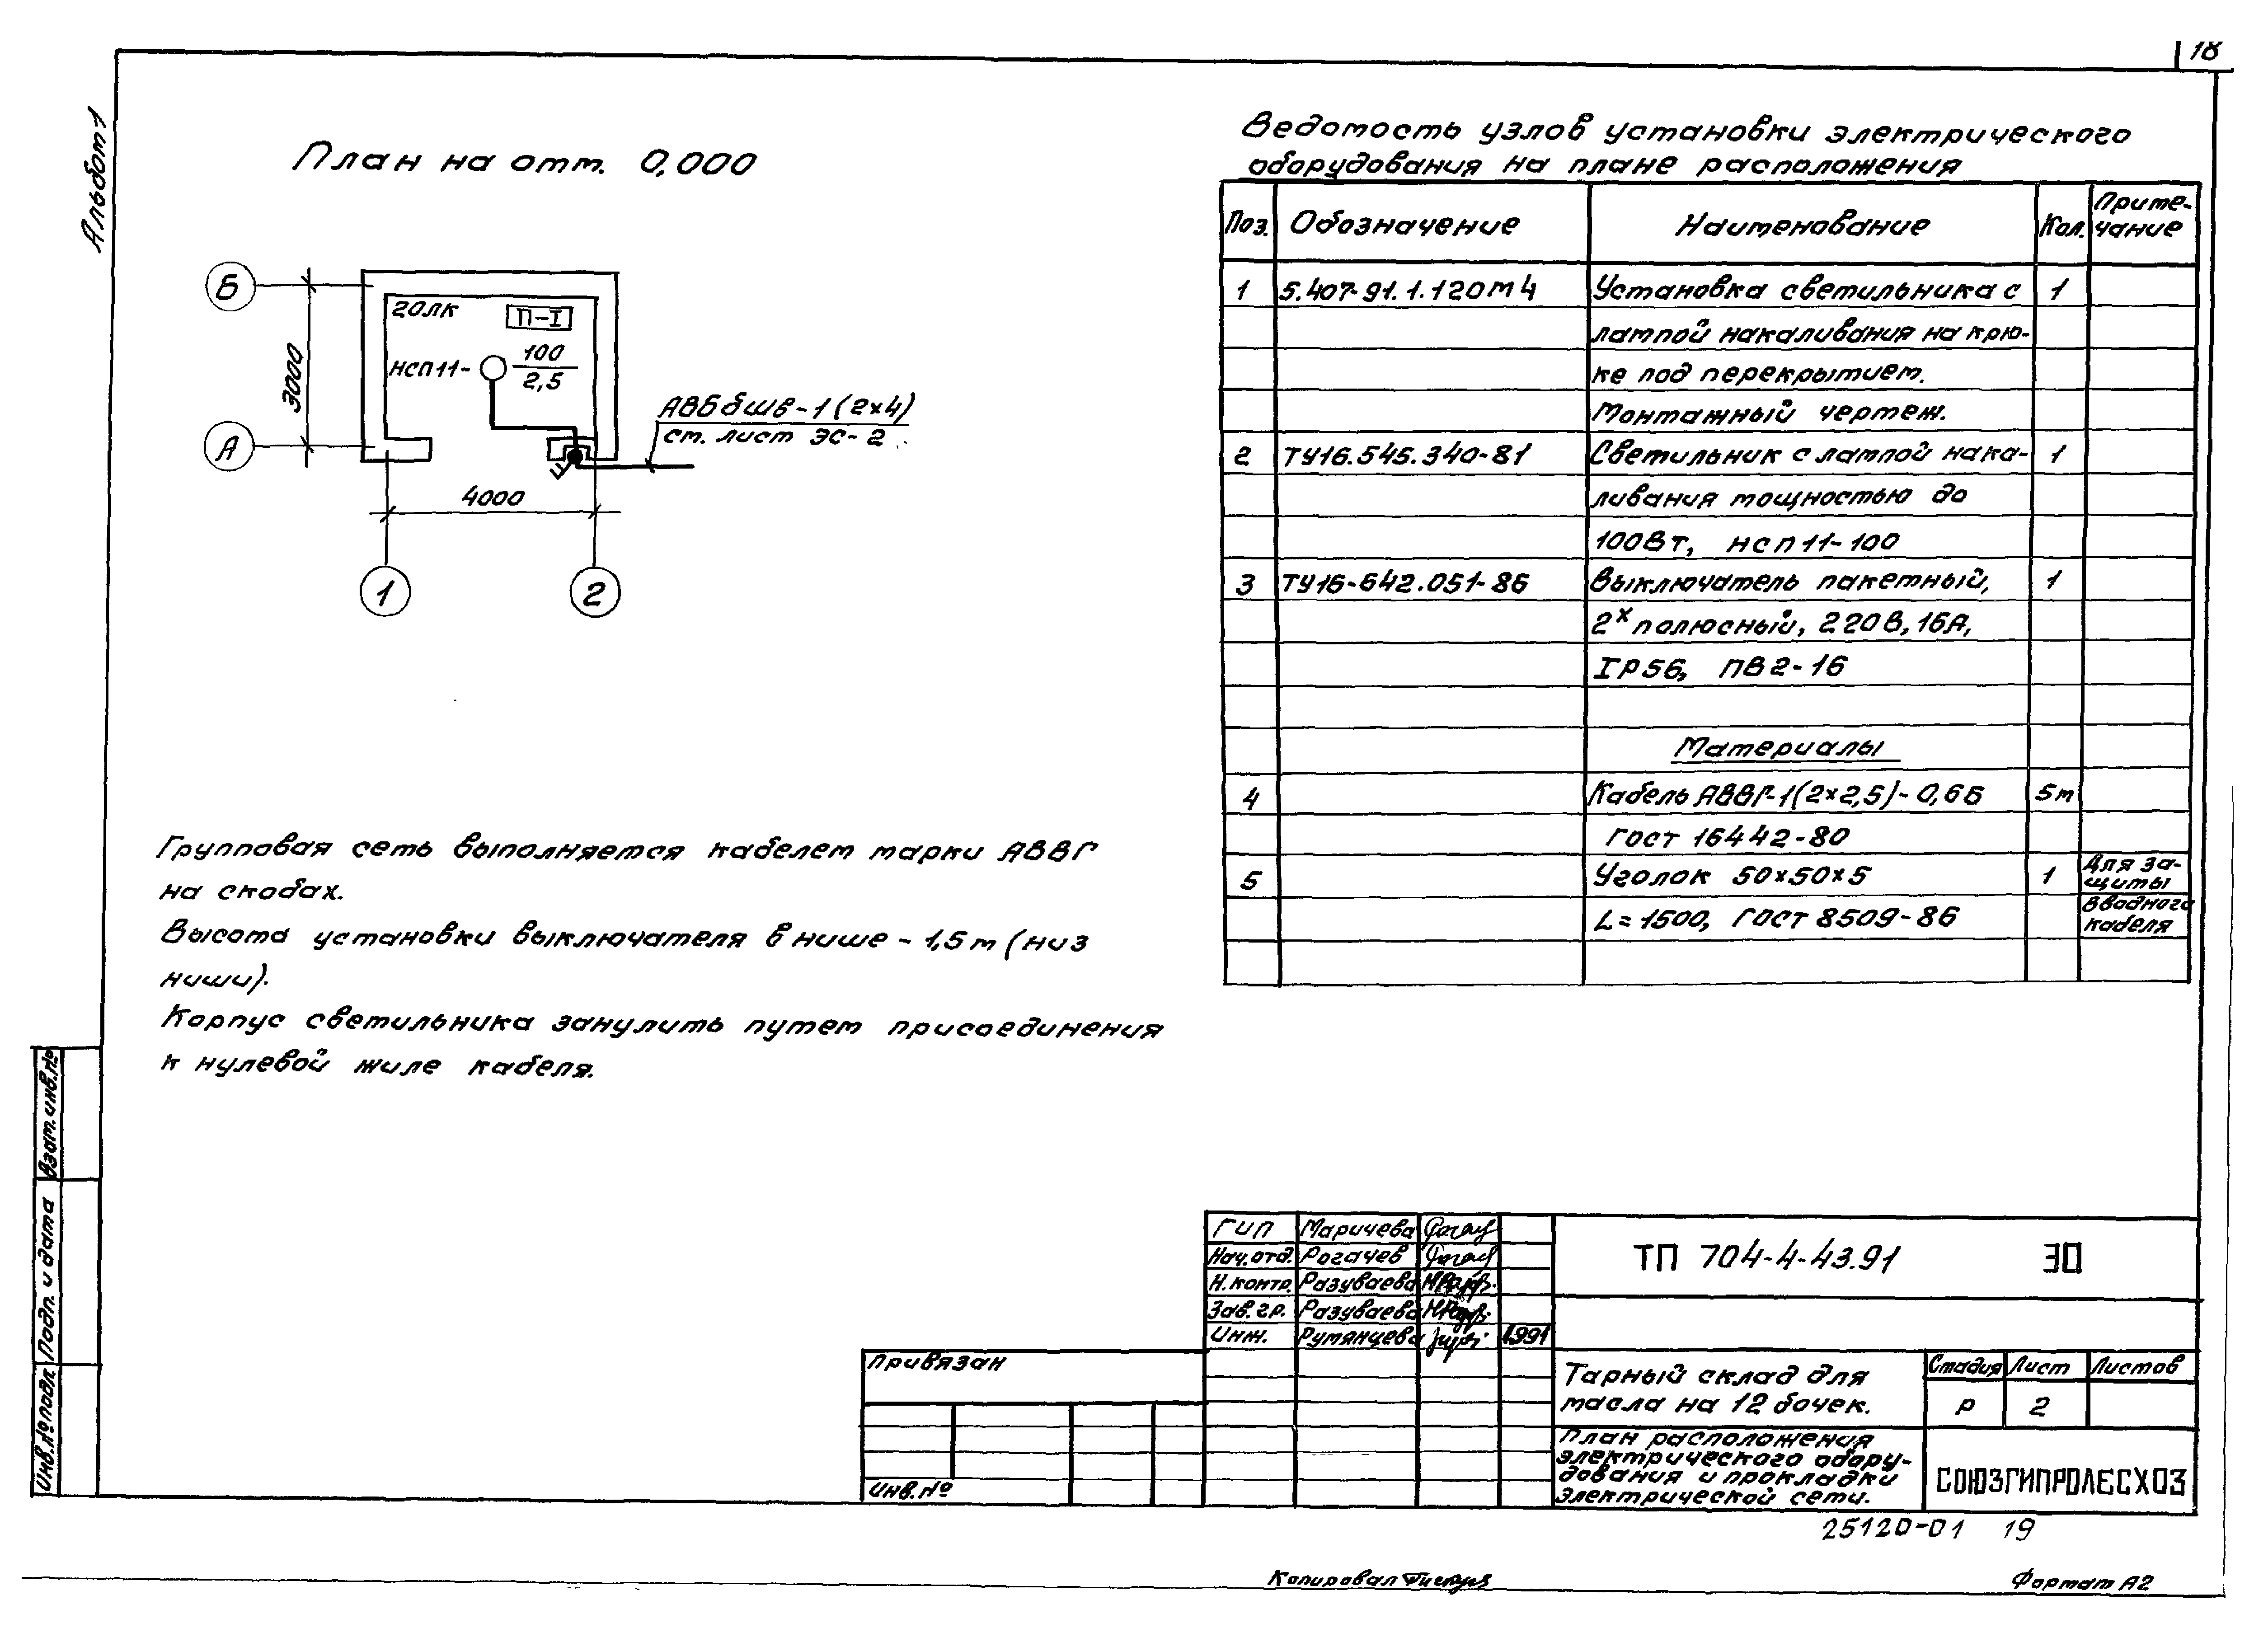 18
Альбом 1
План на отм. 0,000
Б
А
3000
20лк
П-I
НСП11-
100
2,5
АВБбШв-1(2×4)
см. лист ЭС-2
4000
1
2
Групповая сеть выполняется кабелем марки АВВГ
на скобах.
Высота установки выключателя в нише - 1,5м (низ
ниши).
Корпус светильника занулить путем присоединения
к нулевой жиле кабеля.
Ведомость узлов установки электрического
оборудования на плане расположения
Поз. Обозначение Наименование Кол. Приме-
чание
1 5.407-91.1.120М4 Установка светильника с 1
лампой накаливания на крю-
ке под перекрытием.
Монтажный чертеж.
2 ТУ16.545.340-81 Светильник с лампой нака- 1
ливания мощностью до
100Вт, НСП11-100
3 ТУ16-642.051-86 Выключатель пакетный, 1
2х полюсный, 220В, 16А,
IP56, ПВ2-16
Материалы
4 Кабель АВВГ-1(2×2,5)-0,66 5м
ГОСТ 16442-80
5 Уголок 50×50×5 1 Для за-
щиты
L=1500, ГОСТ 8509-86 вводного
кабеля
Взам. инв. №
Подп. и дата
Инв. № подл.
ГИП Маричева
Нач. отд. Рогачев
Н. контр. Разуваева
Зав. гр. Разуваева
Инж. Румянцева 1991
ТП 704-4-43.91 ЭО
Привязан
Инв. №
Тарный склад для
масла на 12 бочек.
Стадия Лист Листов
Р 2
План расположения
электрического обору-
дования и прокладки
электрической сети.
СОЮЗГИПРОЛЕСХОЗ
25120-01 19
Копировал
Формат А2